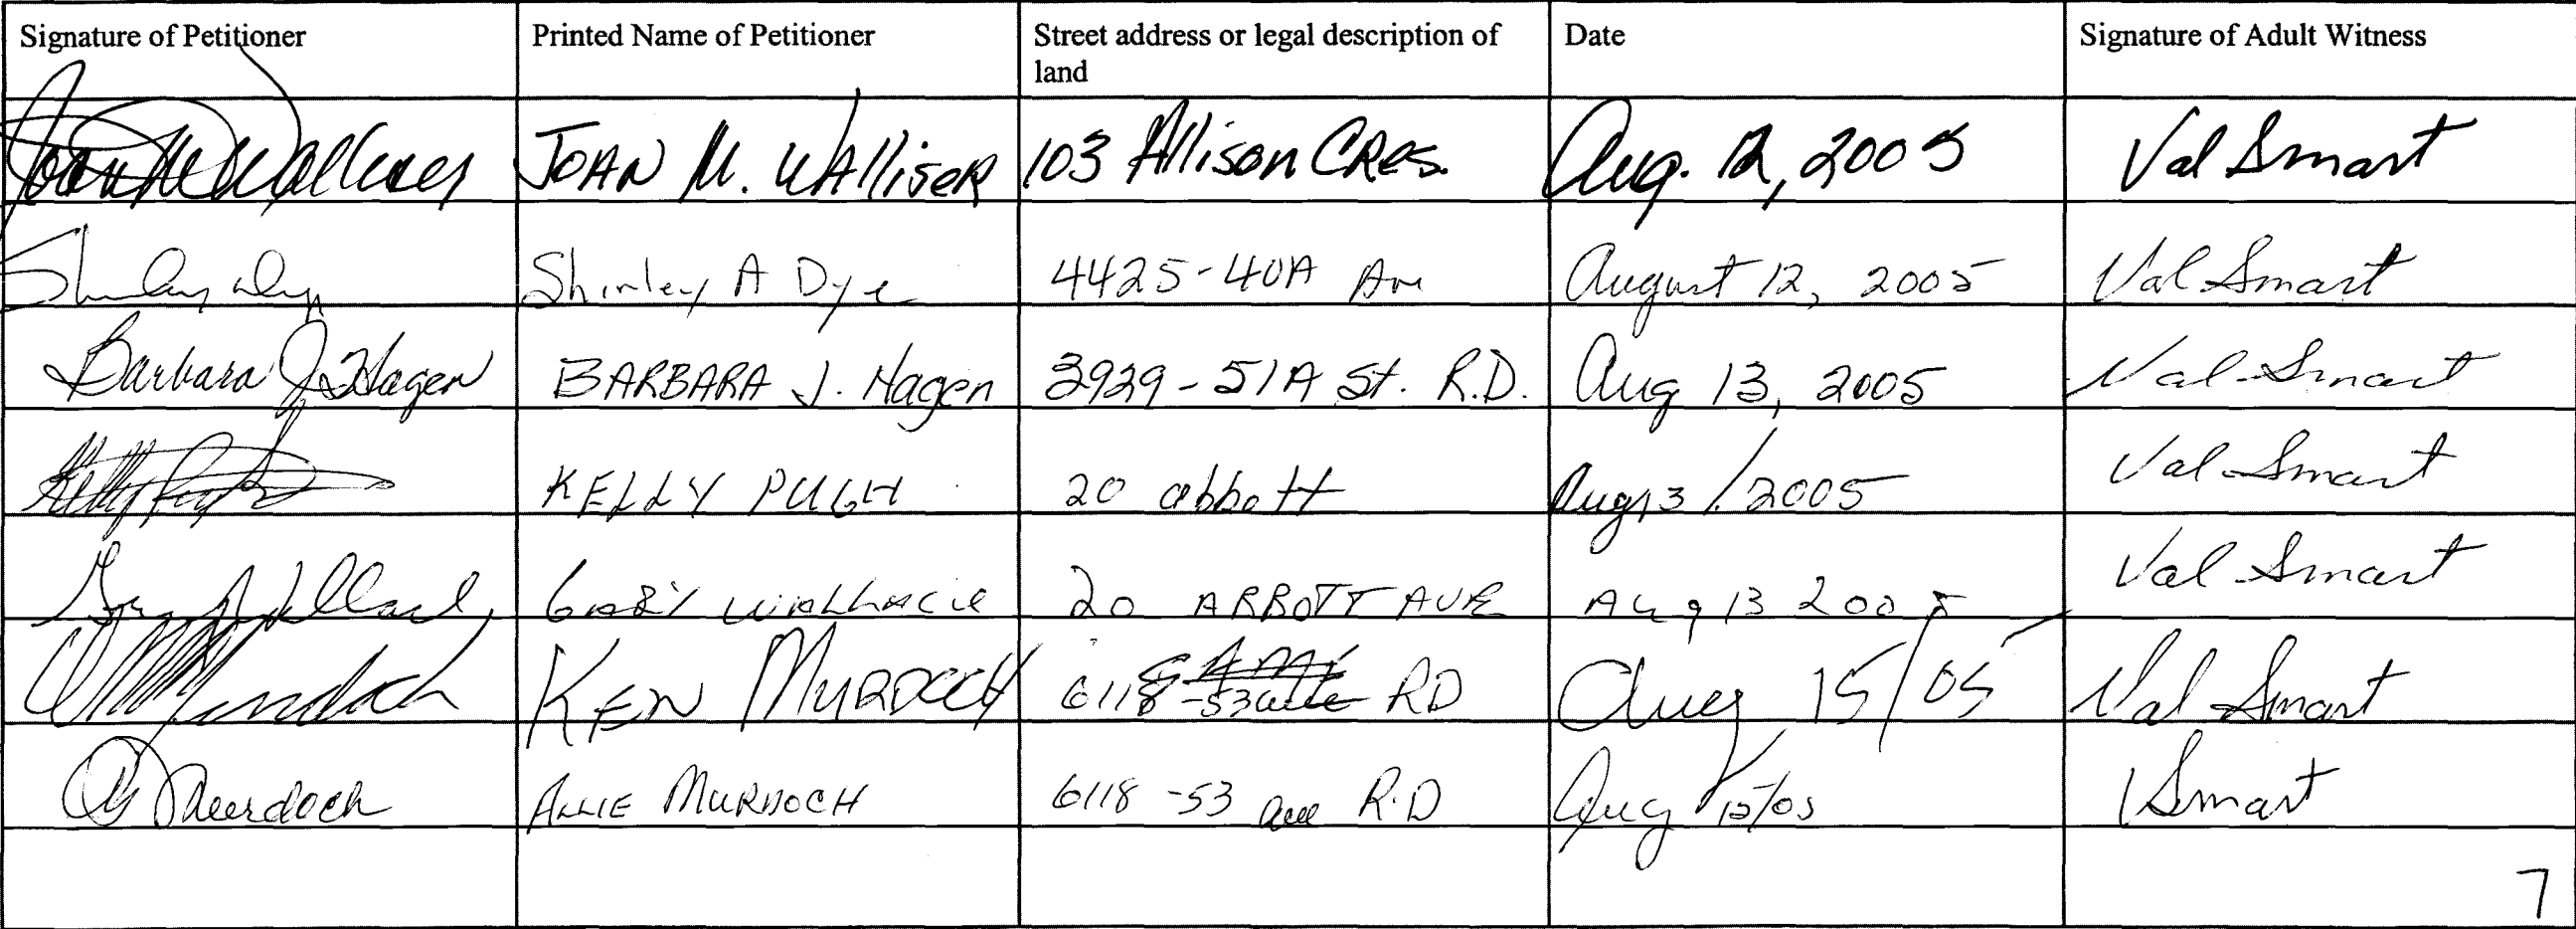 Signature of Petitioner Printed Name of Petitioner Street address or legal description of land Date Signature of Adult Witness
Joan M Walliser JOAN M. WAllisER 103 Allison CRes. Aug. 12, 2005 Val Smart
Shirley Dye Shirley A Dye 4425-40A Ave August 12, 2005 Val Smart
Barbara J. Hagen BARBARA J. Hagen 3929-51A St. R.D. Aug 13, 2005 Val Smart
Kelly Pugh KELLY PUGH 20 abbott Aug 13/2005 Val Smart
GARY 20 ABBOTT AVE Aug 13 2005 Val Smart
Murdoch KEN MURDOCH 6118 -53 ave RD Aug 15/05 Val Smart
Murdoch ALLIE MURDOCH 6118 -53 ave R.D Aug 15/05 VSmart
7